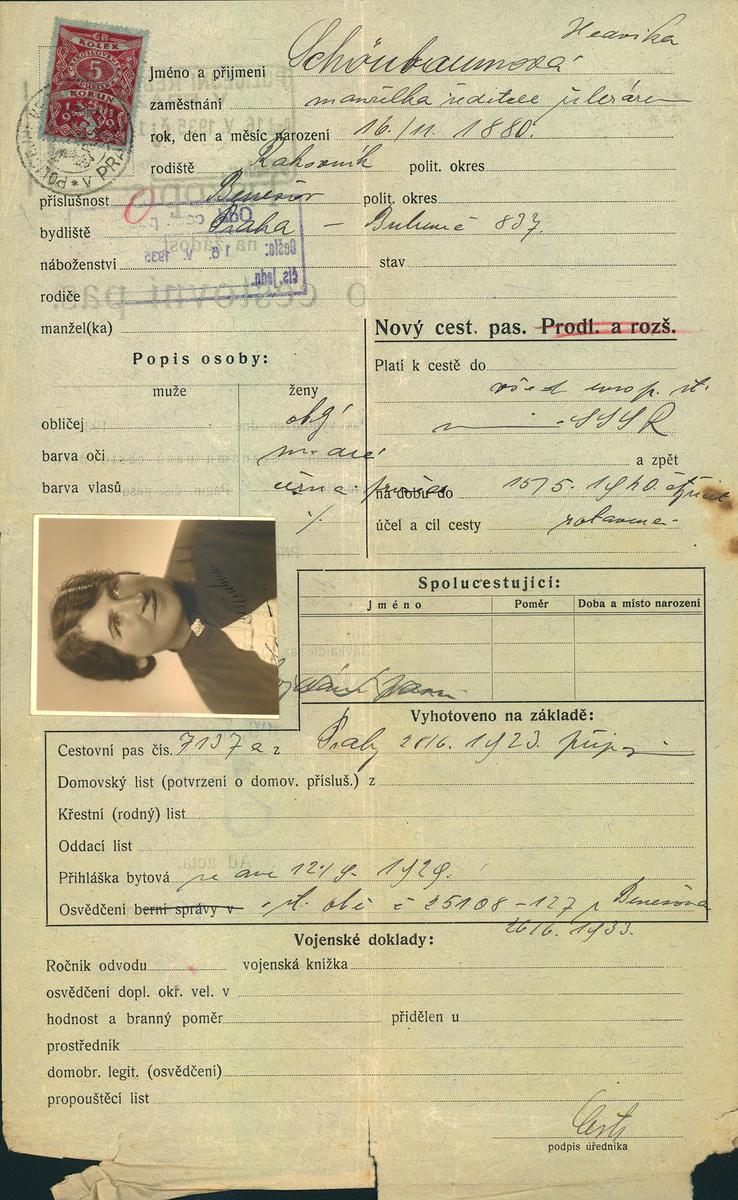 KOLEK
5
KORUN
Hedvika
Jméno a příjmení Schönbaumová
zaměstnání manželka ředitele
rok, den a měsíc narození 16./11. 1880.
rodiště Rakovník polit. okres
příslušnost Benešov polit. okres
bydliště Praha – Bubeneč 837
náboženství stav
rodiče
manžel(ka)
Došlo: 16. V. 1935
čís. jedn.
Nový cest. pas. Prodl. a rozš.
Popis osoby:
muže ženy
obličej
barva očí modré
barva vlasů
Platí k cestě do
všech evrop. st.
SSSR
a zpět
na dobu do 15/5. 1940.
účel a cíl cesty
Spolucestující:
Jméno Poměr Doba a místo narození
Vyhotoveno na základě:
Cestovní pas čís. 7137 a z Prahy 28/6. 1923.
Domovský list (potvrzení o domov. přísluš.) z
Křestní (rodný) list
Oddací list
Přihláška bytová ze dne 12/9. 1929.
Osvědčení berní správy v st. obč. č 25108–127 z Benešova
26/6. 1933.
Vojenské doklady:
Ročník odvodu vojenská knížka
osvědčení dopl. okr. vel. v
hodnost a branný poměr přidělen u
prostředník
domobr. legit. (osvědčení)
propouštěcí list
podpis úředníka